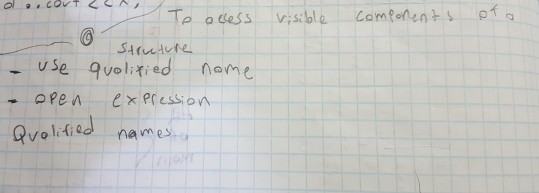 To access visible components of a
structure
- use qualified name
- open expression
Qualified names